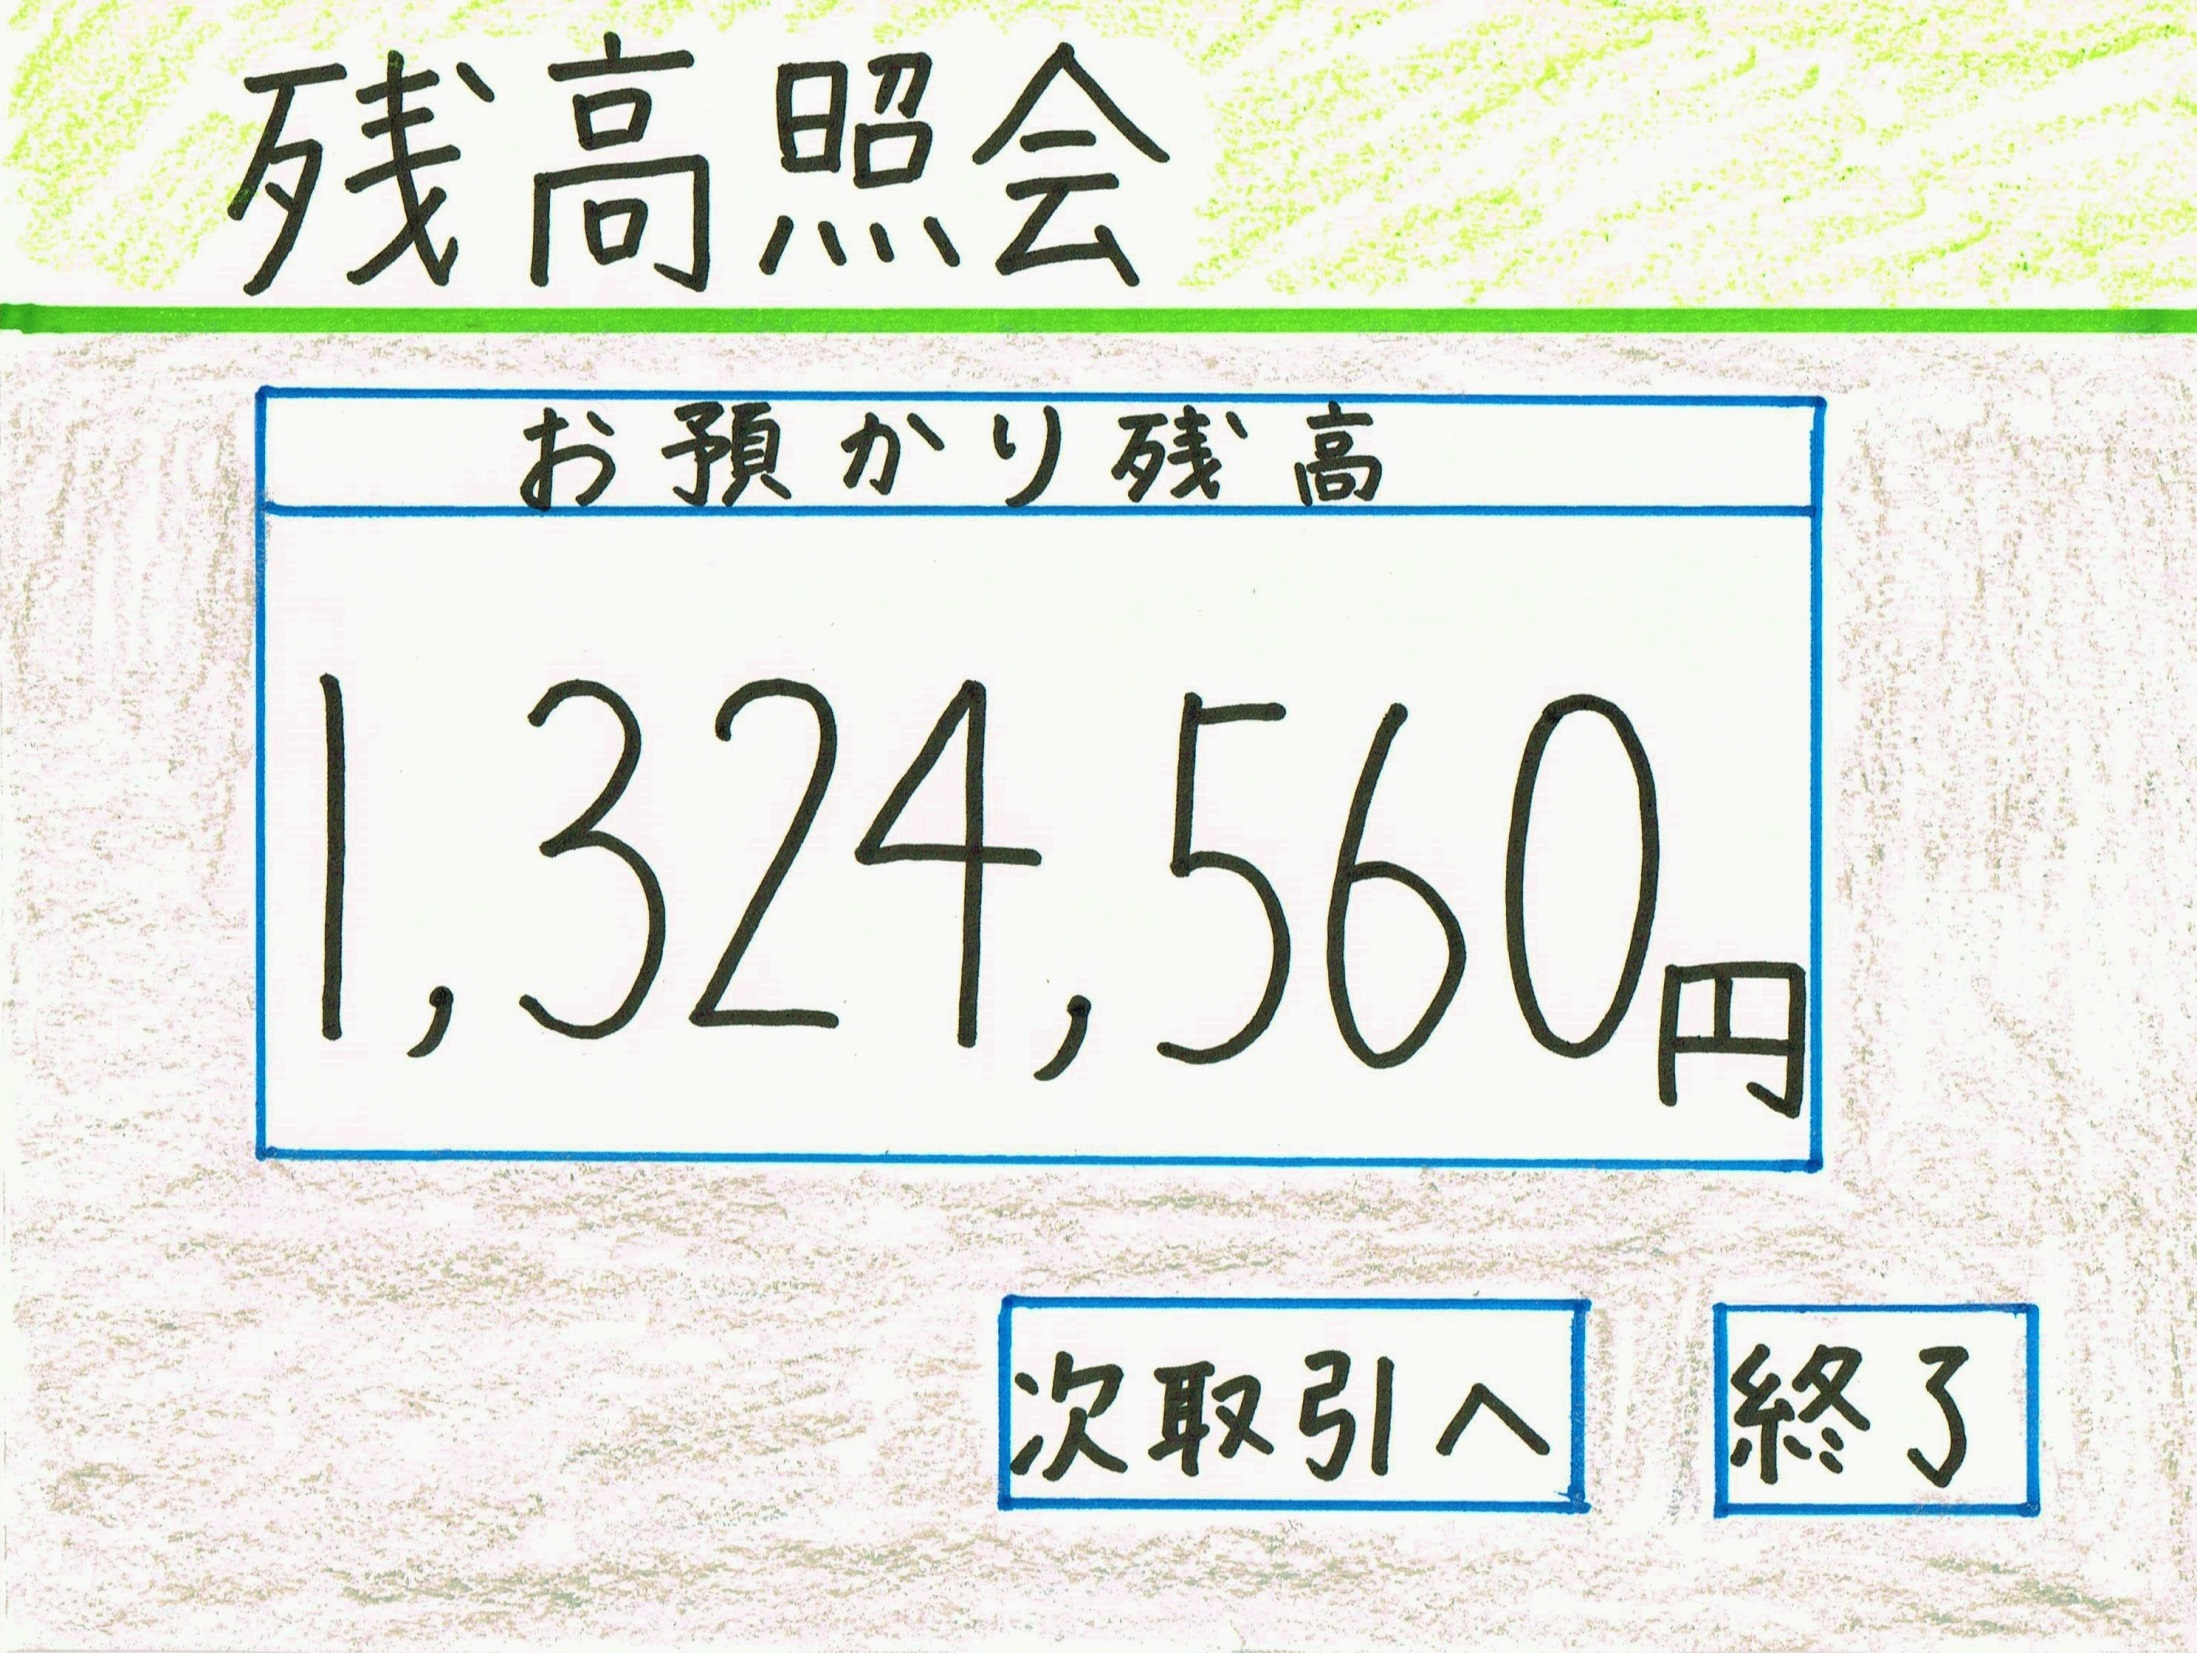 残高照会
お預かり残高
1,324,560円
次取引へ
終了